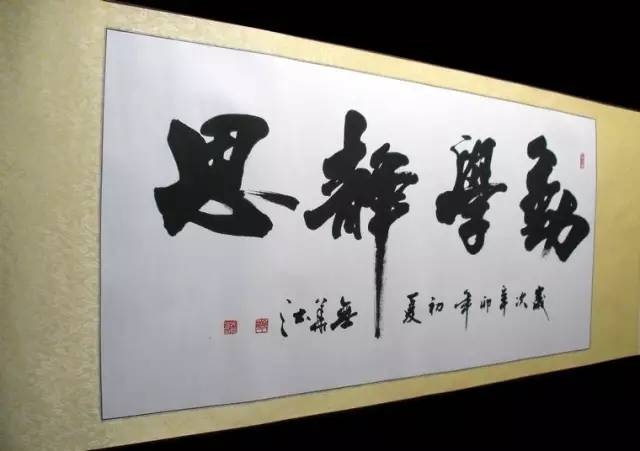 勤學靜思
歲次辛卯年初夏